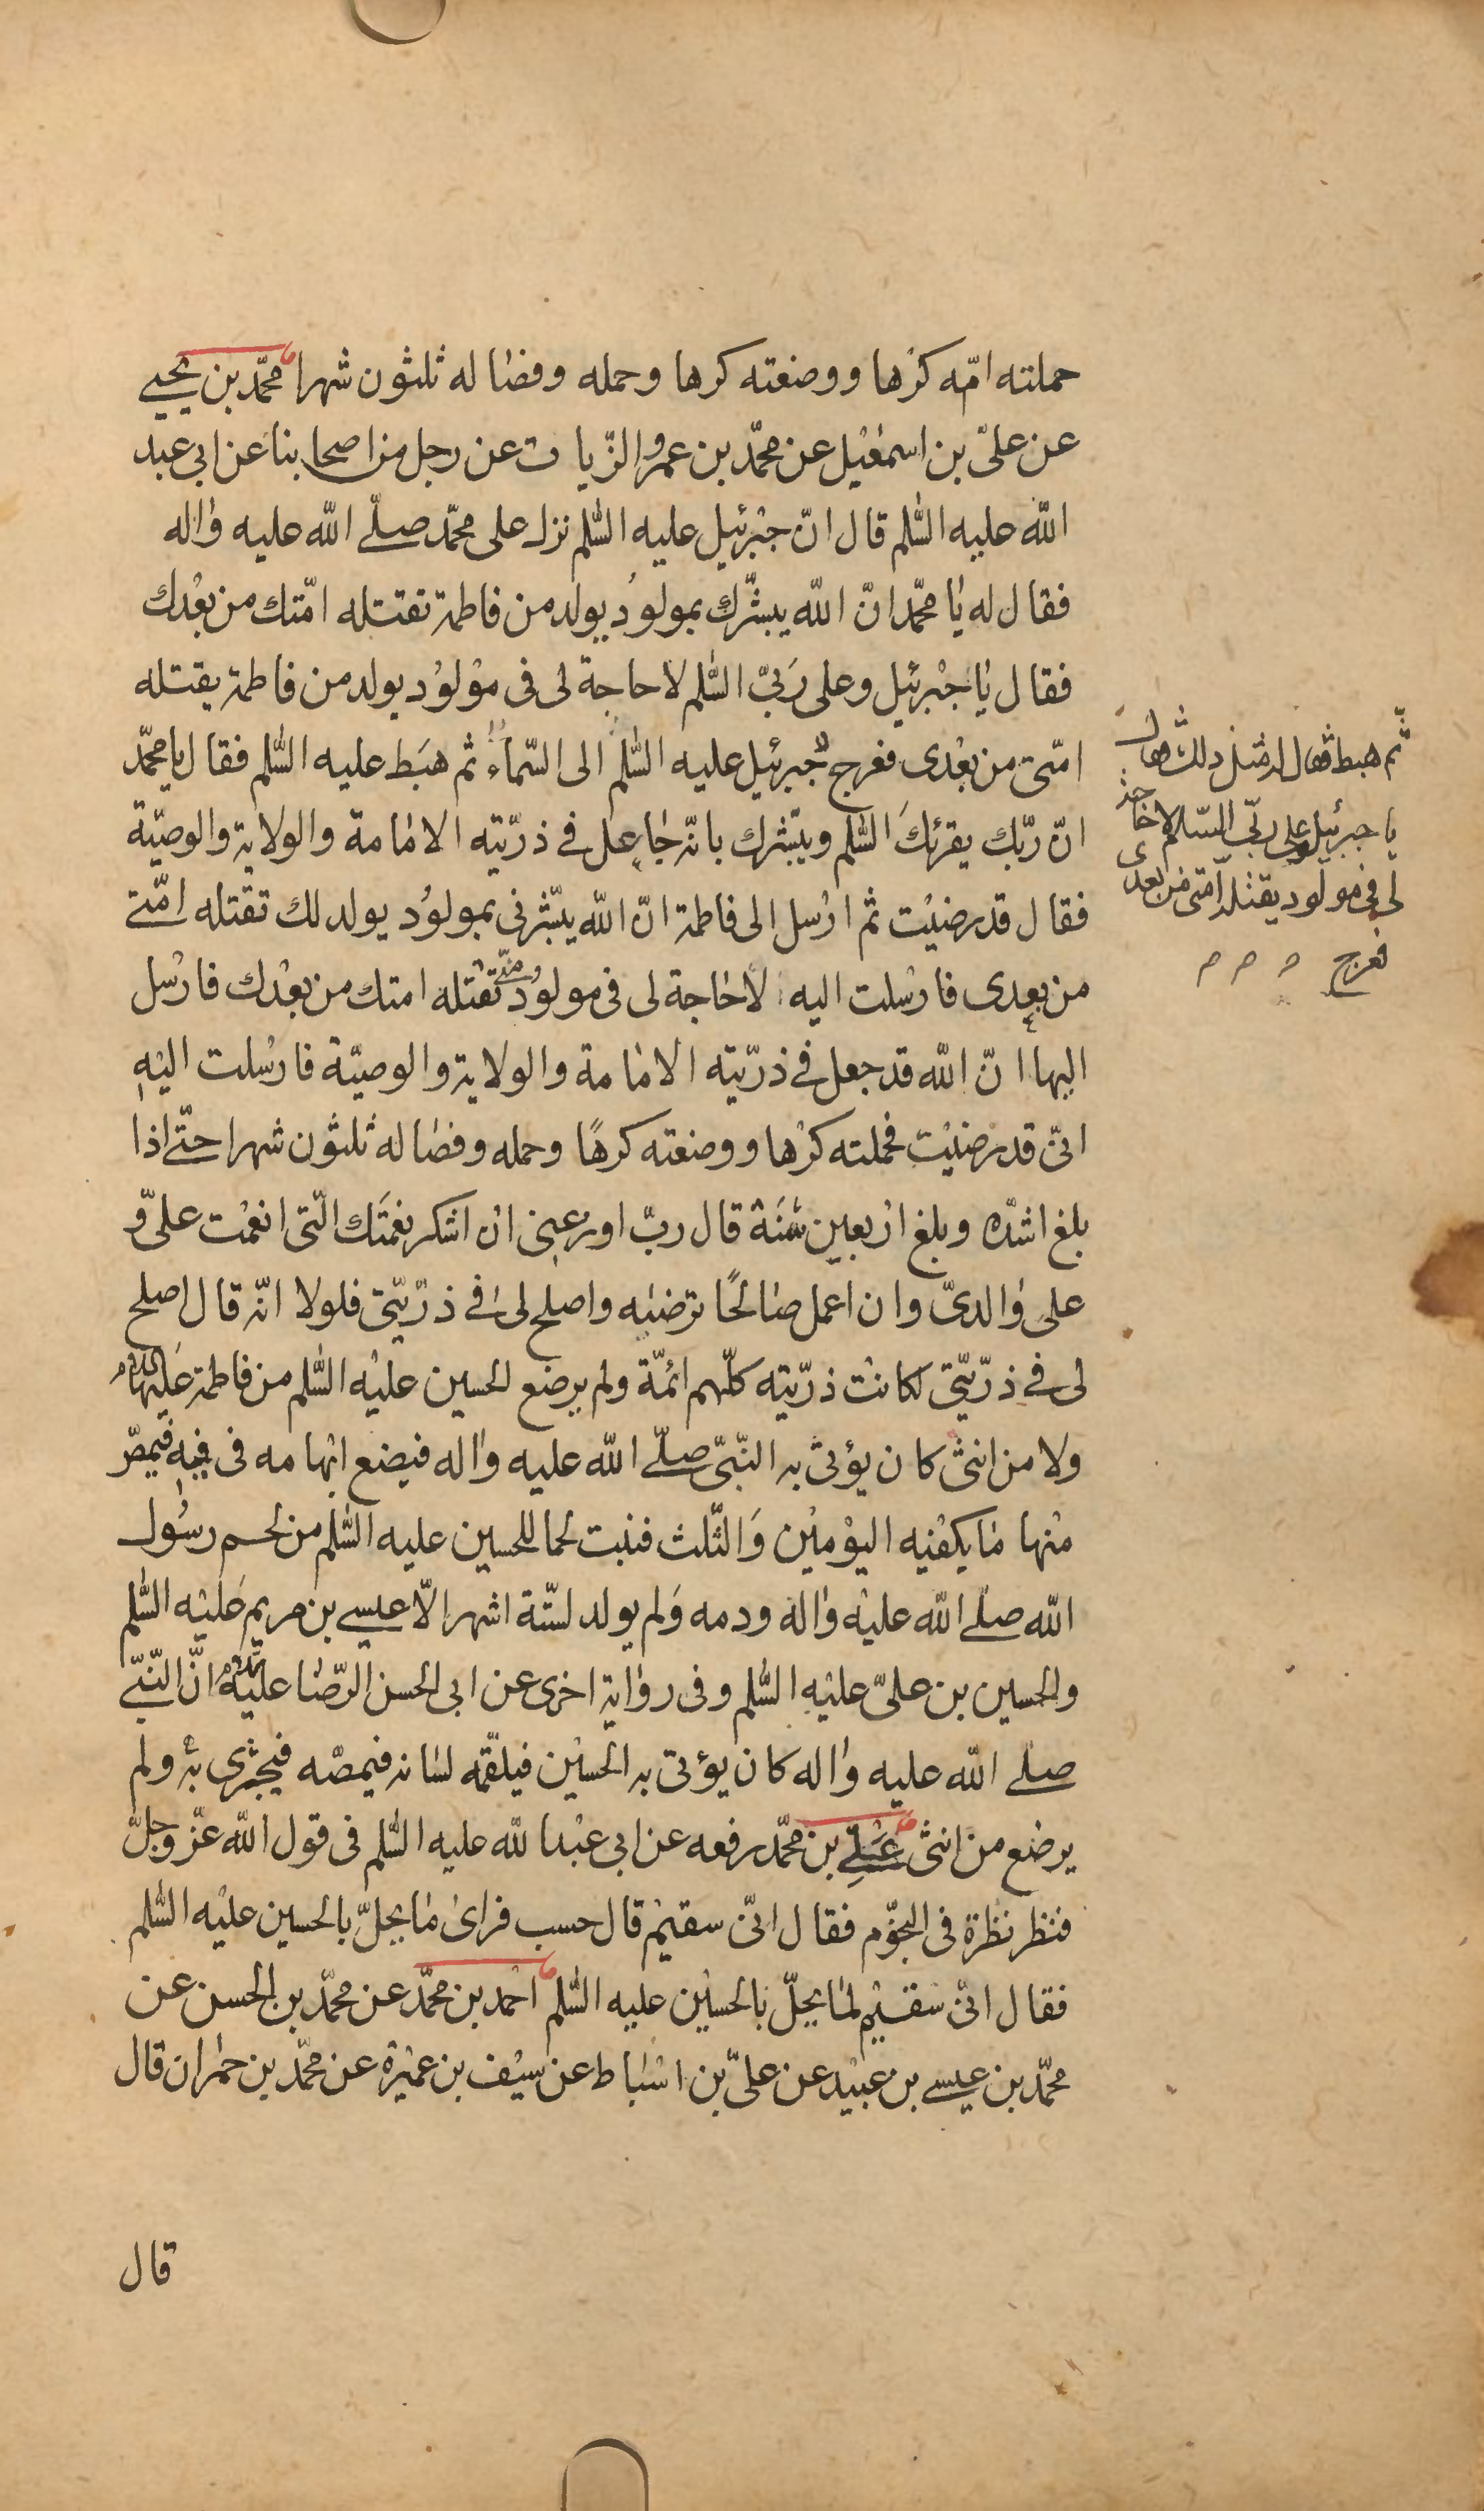 حملته امّه كرها ووضعته كرها وحمله وفصاله ثلثون شهرا محمّد بن يحيى
عن علىّ بن اسمعيل عن محمّد بن عمرو الزّيات عن رجل من اصحابنا عن ابى عبد
الله عليه السّلم قال انّ جبرئيل عليه السّلم نزل على محمّد صلّى الله عليه واله
فقال له يا محمّد انّ الله يبشّرك بمولود يولد من فاطمة تقتله امّتك من بعدك
فقال يا جبرئيل وعلى ربّى السّلم لا حاجة لى فى مولود يولد من فاطمة يقتله
امّتى من بعدى فعرج جبرئيل عليه السّلم الى السّماء ثم هبط عليه السّلم فقال يا محمّد
انّ ربّك يقرئك السّلم ويبّشرك بانّه جاعل فى ذرّيته الامامة والولاية والوصيّة
فقال قد رضيت ثم ارسل الى فاطمة انّ الله يبّشرنى بمولود يولد لك تقتله امّتى
من بعدى فارسلت اليه لا حاجة لى فى مولود منّى تقتله امتك من بعدك فارسل
اليها انّ الله قد جعل فى ذرّيته الامامة والولاية والوصيّة فارسلت اليه
انّى قد رضيت فحملته كرها ووضعته كرهًا وحمله وفصاله ثلثون شهرا حتّى اذا
بلغ اشدّه وبلغ اربعين سنة قال ربّ اوزعنى ان اشكر نعمتك الّتى انعمت علىّ و
على والدىّ وان اعمل صالحًا ترضيه واصلح لى فى ذرّيّتى فلولا انّه قال اصلح
لى فى ذرّيّتى لكانت ذرّيته كلّهم ائمّة ولم يرضع الحسين عليه السّلم من فاطمة عليها السلام
ولا من انثى كان يؤتى به النّبىّ صلّى الله عليه واله فيضع ابهامه فى فيه فيمصّ
منها ما يكفيه اليومين والثّلث فنبت لحما للحسين عليه السّلم من لحم رسول
الله صلّى الله عليه واله ودمه ولم يولد لستّة اشهر الّا عيسى بن مريم عليه السّلم
والحسين بن علىّ عليه السّلم وفى رواية اخرى عن ابى الحسن الرّضا عليه السلام انّ النّبىّ
صلى الله عليه واله كان يؤتى به الحسين فيلقّمه لسانه فيمصّه فيجتزى به ولم
يرضع من انثى علىّ بن محمّد رفعه عن ابى عبد الله عليه السّلم فى قول الله عزّ وجلّ
فنظر نظرة فى النجّوم فقال انّى سقيم قال حسب فراى ما يحلّ بالحسين عليه السّلم
فقال انّى سقيم لما يحلّ بالحسين عليه السّلم احمد بن محمّد عن محمّد بن الحسن عن
محمّد بن عيسى بن عبيد عن علىّ بن اسباط عن سيف بن عميرة عن محمّد بن حمران قال
قال
ثّم هبط فقال له مثل ذلك فقال
يا جبرئيل وعلى ربّى السّلام لا حاجة
لى فى مولود يقتله امّتى من بعدى
فعرج